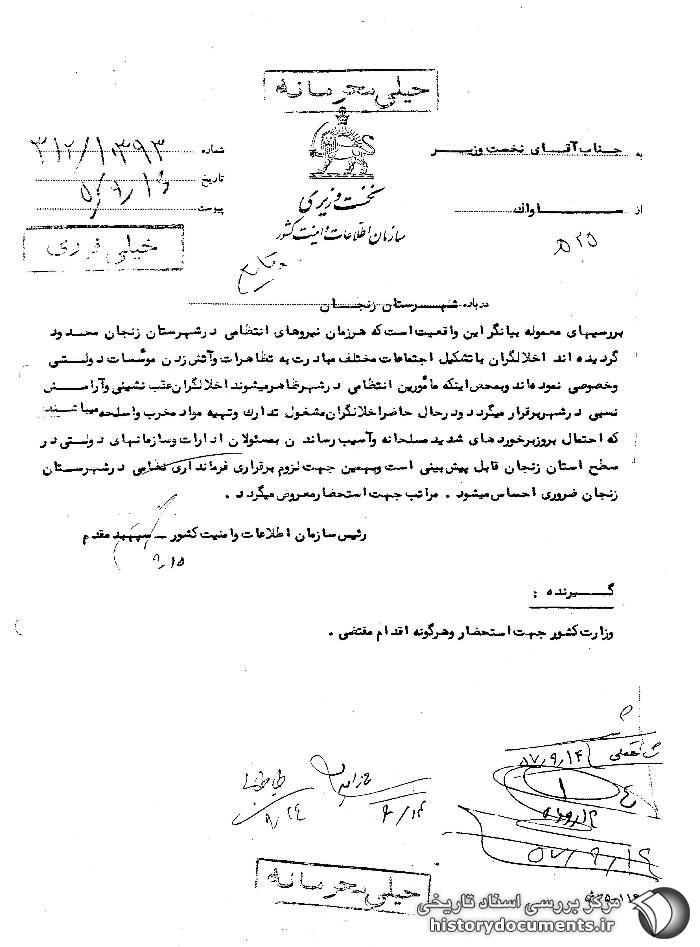 خیلی محرمانه
به جناب آقای نخست وزیر
شماره ۳۱۲/۱۰۳۹۳
تاریخ
نخست وزیری
از ساواک
پیوست
سازمان اطلاعات و امنیت کشور
خیلی فوری
درباره شهرستان زنجان
بررسیهای معموله بیانگر این واقعیت است که هرزمان نیروهای انتظامی درشهرستان زنجان محدود
گردیده اند اخلالگران با تشکیل اجتماعات مختلف مبادرت به تظاهرات وآتش زدن موسسات دولتی
وخصوصی نموده اند وبمحض اینکه مأمورین انتظامی درشهرظاهرمیشوند اخلالگران عقب نشینی وآرامش
نسبی درشهربرقرار میگردد ودرحال حاضراخلالگران مشغول تدارک وتهیه مواد مخرب واسلحه میباشند
که احتمال بروزبرخوردهای شدید مسلحانه وآسیب رساندن بمسئولان ادارات وسازمانهای دولتی در
سطح استان زنجان قابل پیش بینی است وبهمین جهت لزوم برقراری فرمانداری نظامی درشهرستان
زنجان ضروری احساس میشود . مراتب جهت استحضار معروض میگردد .
رئیس سازمان اطلاعات وامنیت کشور ـ سپهبد مقدم
۹/۱۵
گیرنده :
وزارت کشور جهت استحضار وهرگونه اقدام مقتضی .
۵۷/۹/۱۴
۹/۱۴
خیلی محرمانه
مرکز بررسی اسناد تاریخی
historydocuments.ir